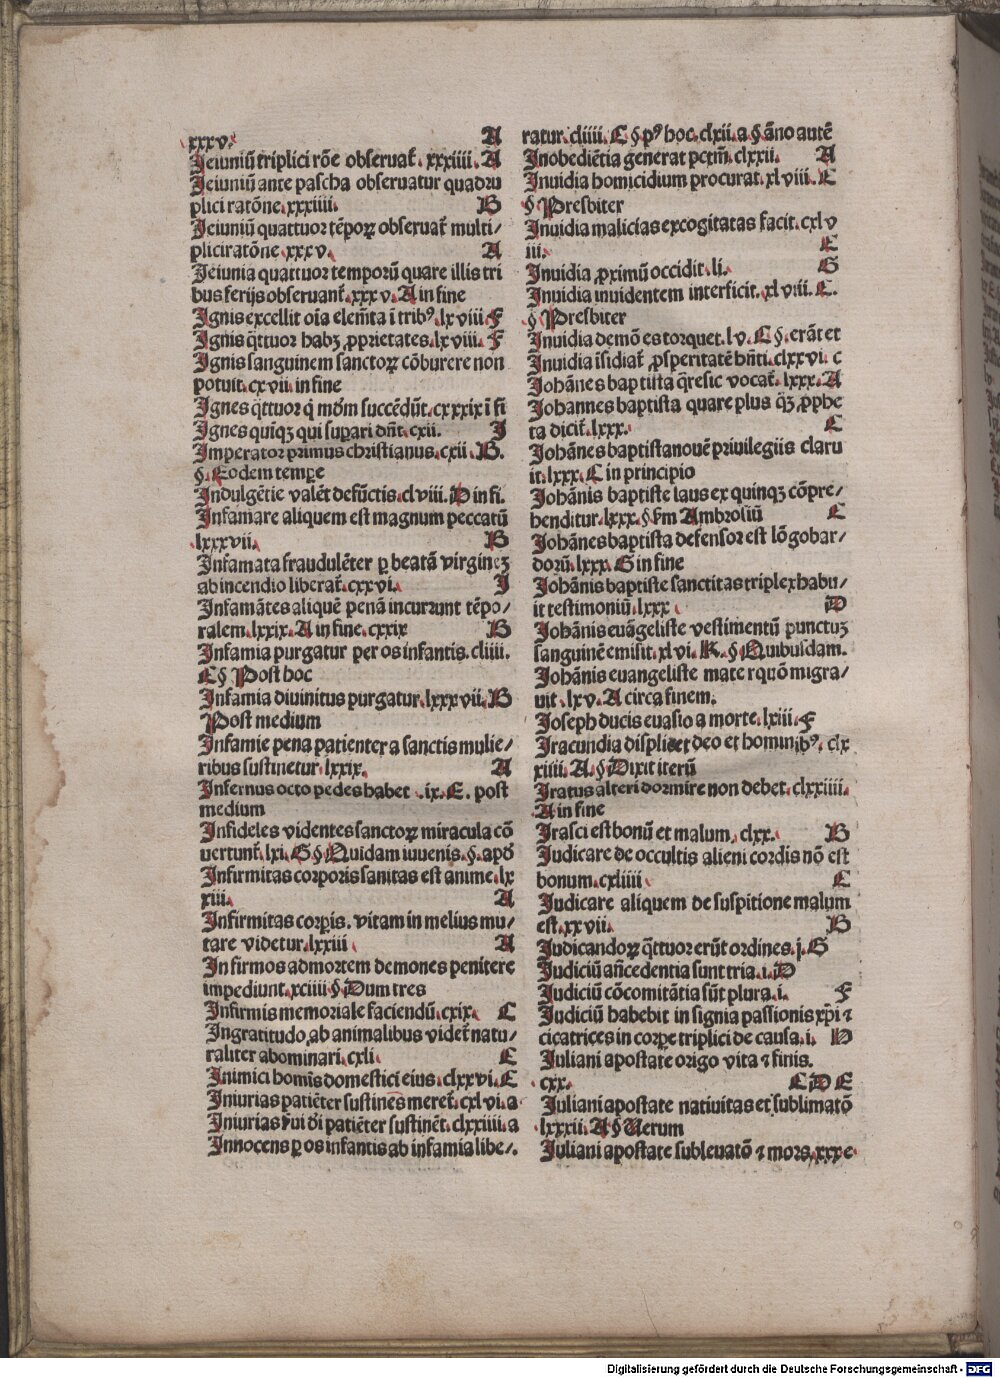 xxxv. A
Jeiuniū triplici rōe obseruat̄. xxxiiii. A
Jeiuniū ante pascha obseruatur quadru
plici ratōne. xxxiiii. B
Jeiuniū quattuor tēporꝝ obseruat̄ multi/
pliciratōne. xxxv. A
Jeiunia quattuor temporū quare illis tri
bus ferijs obseruant̄. xxxv. A in fine
Ignis excellit oīa elem̄ta ī tribꝰ. lxviii. F
Ignis q̄ttuor habꝫ ꝓprietates. lxviii. F
Ignis sanguinem sanctorꝝ cōburere non
potuit. cxvii. in fine
Ignes q̄ttuor q̇ mōm succēdūt. cxxxix ī fi
Ignes quīqꝫ qui suꝑari dn̄t. cxii. J
Imperator primus christianus. cxii. B.
§. Eodem tempe
Indulgētie valēt defūctis. clviii. D in fi.
Infamare aliquem est magnum peccatū
lxxxvii. B
Infamata fraudulēter ꝑ beatā virginēꝫ
ab incendio liberat̄. cxxvi. J
Infamātes aliquē penā incurrunt tēpo/
ralem. lxxix. A in fine. cxxix B
Infamia purgatur per os infantis. cliiii.
C § Post hoc
Infamia diuinitus purgatur. lxxxvii. B
Post medium
Infamie pena patienter a sanctis mulie/
ribus sustinetur. lxxix. A
Infernus octo pedes habet .ix. E. post
medium
Infideles videntes sanctorꝝ miracula cō
uertunt̄. lxi. G § Quidam iuuenis. §. apd̄
Infirmitas corporis sanitas est anime. lx
xiii. A
Infirmitas corꝑis. vitam in melius mu/
tare videtur. lxxiii A
Infirmos ad mortem demones penitere
impediunt. xciiii § Dum tres
Infirmis memoriale faciendū. cxix. C
Ingratitudo ab animalibus videt̄ natu/
raliter abominari. cxli C
Inimici homīs domestici eius. clxxvi. C
Iniurias patiēter sustinēs meret̄. cxlvi. a
Iniurias ui di patiēter sustinēt. clxxiiii. a
Innocens ꝑ os infantis ab infamia libe/.
ratur. cliiii. C § pꝰ hoc. clxii. a § āno autē
Inobediētia generat pctm̄. clxxii. A
Inuidia homicidium procurat. xlviii. C
§ Presbiter
Inuidia malicias excogitatas facit. cxlv
iii. E
Inuidia ꝓximū occidit. li. G
Inuidia inuidentem interficit. xlviii. C.
§ Presbiter
Inuidia demōes torquet. lv. C §. erāt et
Inuidia īsidiat̄ ꝓsperitatē bn̄ti. clxxvi. c
Johānes baptista q̄re sic vocat̄. lxxx. A
Johannes baptista quare plus q̄ꝫ ꝓphe
ta dicit̄. lxxx. C
Johānes baptista nouē priuilegiis claru
it. lxxx. C in principio
Johānis baptiste laus ex quinqꝫ cōpre/
henditur. lxxx. § f̄m Ambrosiū C
Johānes baptista defensor est lōgobar/
dorū. lxxx. G in fine
Johānis baptiste sanctitas triplex habu/
it testimoniū. lxxx D
Johānis euāgeliste vestimentū punctuꝫ
sanguinē emisit. xlvi. K. § Quibusdam.
Johānis euangeliste mater quō migra/
uit. lxv. A circa finem.
Joseph ducis euasio a morte. lxiii. F
Iracundia displicet deo et hominibꝰ. clx
xiiii. A. § Dixit iterū
Iratus alteri dormire non debet. clxxiiii.
A in fine
Irasci est bonū et malum. clxx. B
Iudicare de occultis alieni cordis nō est
bonum. cxliiii C
Iudicare aliquem de suspitione malum
est. xxvii. B
Iudicandorꝝ q̄ttuor erūt ordines. j. G
Iudiciū an̄cedentia sunt tria. i. D
Iudiciū cōcomitātia sūt plura. i. F
Iudiciū habebit in signia passionis xp̄i ⁊
cicatrices in corpe triplici de causa. i. H
Iuliani apostate origo vita ⁊ finis.
cxx. C D E
Iuliani apostate natiuitas et sublimatō
lxxxii. A § Uerum
Iuliani apostate subleuatō ⁊ mors. xxx e
Digitalisierung gefördert durch die Deutsche Forschungsgemeinschaft - DFG